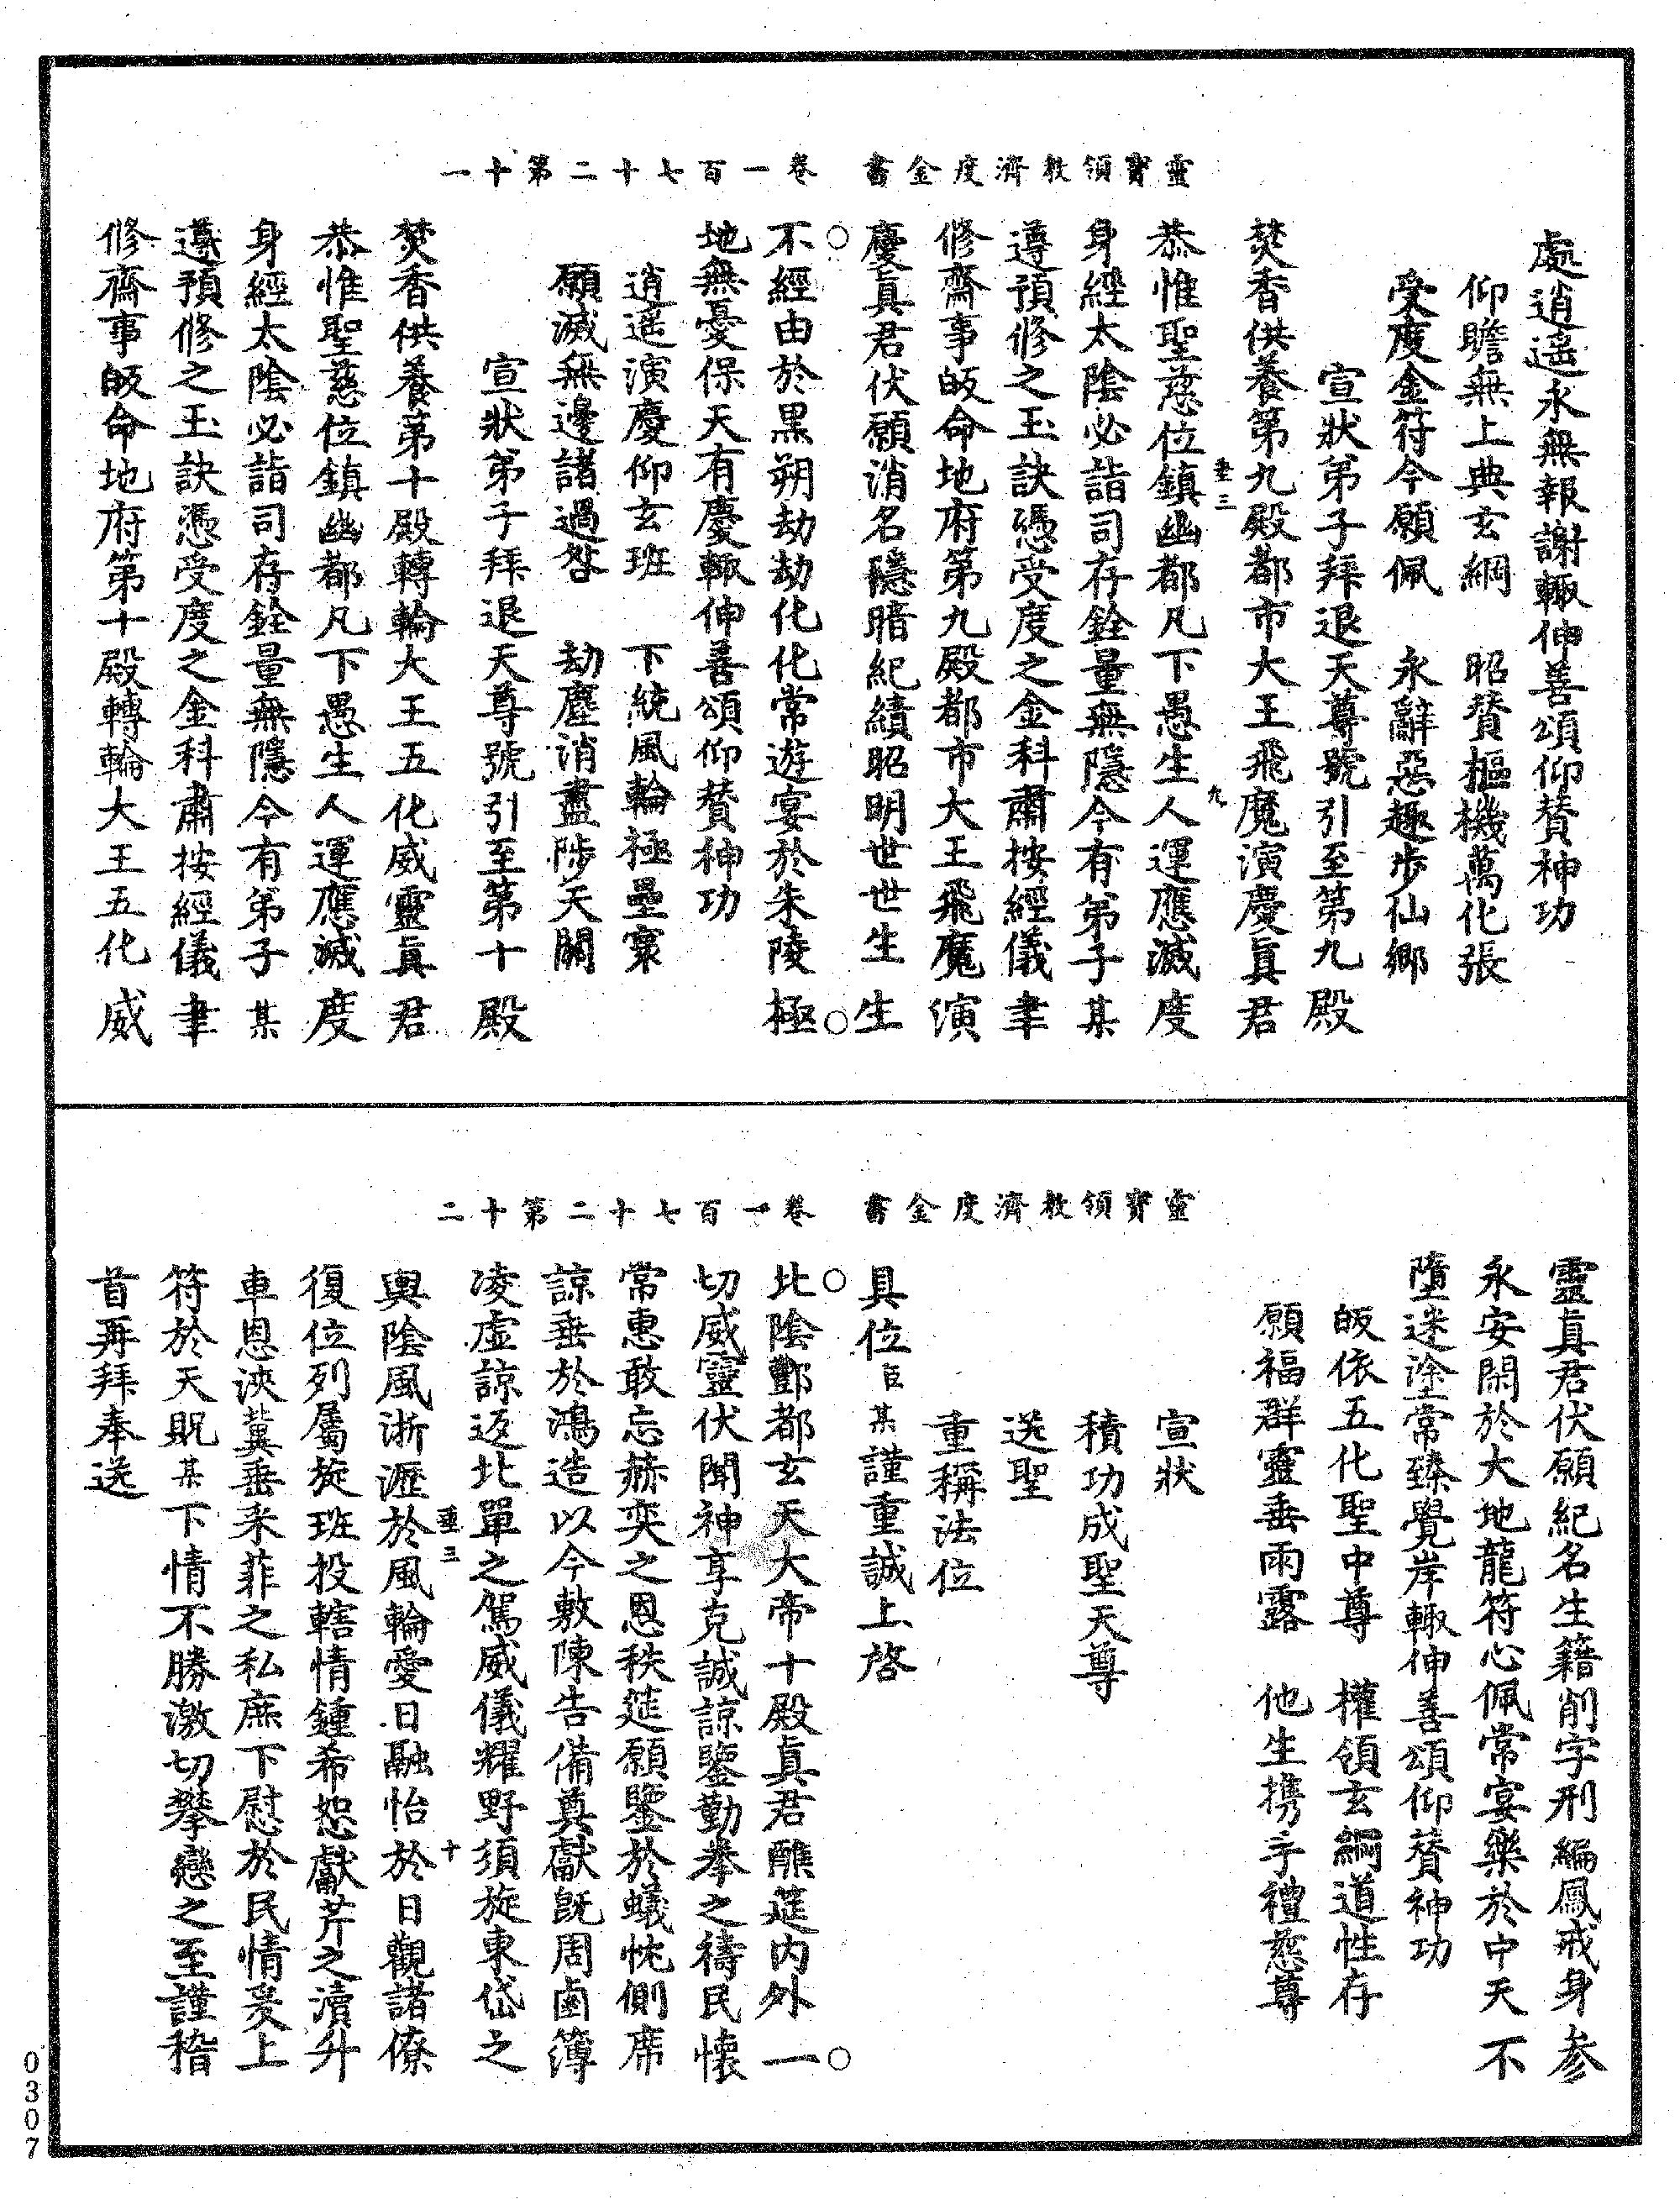 靈寶領教濟度金書　卷一百七十二第十一
處逍遙永無報謝輙伸善頌仰賛神功
仰瞻無上典玄綱　昭賛樞機萬化張
受度金符今願佩　永辭惡趣步仙鄉
宣狀弟子拜退天尊號引至第九殿
焚香供養第九殿都市大王飛魔演慶真君
垂三　九
恭惟聖慈位鎮幽都凡下愚生人運應滅度
身經太陰必詣司存銓量無隱今有弟子某
遵預修之玉訣憑受度之金科肅按經儀聿
修齋事皈命地府第九殿都市大王飛魔演
慶真君伏願消名隱暗紀績昭明世世生生
不經由於黑朔劫劫化化常遊宴於朱陵極
地無憂保天有慶輙伸善頌仰賛神功
逍遥演慶仰玄班　下統風輪極壘寰
願滅無邊諸過咎　劫塵消盡陟天關
宣狀弟子拜退天尊號引至第十殿
焚香供養第十殿轉輪大王五化威靈真君
恭惟聖慈位鎮幽都凡下愚生人運應滅度
身經太陰必詣司存銓量無隱今有弟子某
遵預修之玉訣憑受度之金科肅按經儀聿
修齋事皈命地府第十殿轉輪大王五化威
靈寶領教濟度金書　卷一百七十二第十二
靈真君伏願紀名生籍削字刑編鳳戒身參
永安閑於大地龍符心佩常宴樂於中天不
墮迷塗常臻覺岸輙伸善頌仰賛神功
皈依五化聖中尊　權領玄綱道性存
願福群靈垂雨露　他生携手禮慈尊
宣狀
積功成聖天尊
送聖
重稱法位
具位臣某謹重誠上啓
北陰酆都玄天大帝十殿真君醮筵内外一
切威靈伏聞神享克誠諒鑒勤拳之禱民懷
常惠敢忘赫奕之恩秩筵願鑒於蟻忱側席
諒垂於鴻造以今敷陳告備奠獻既周鹵簿
凌虛諒返北單之駕威儀耀野須旋東岱之
輿陰風淅瀝於風輪愛日融怡於日觀諸僚
垂三　十
復位列屬旋班投轄情鍾希恕獻芹之瀆升
車恩浹冀垂采菲之私庶下慰於民情爰上
符於天貺某下情不勝激切攀戀之至謹稽
首再拜奉送
0307